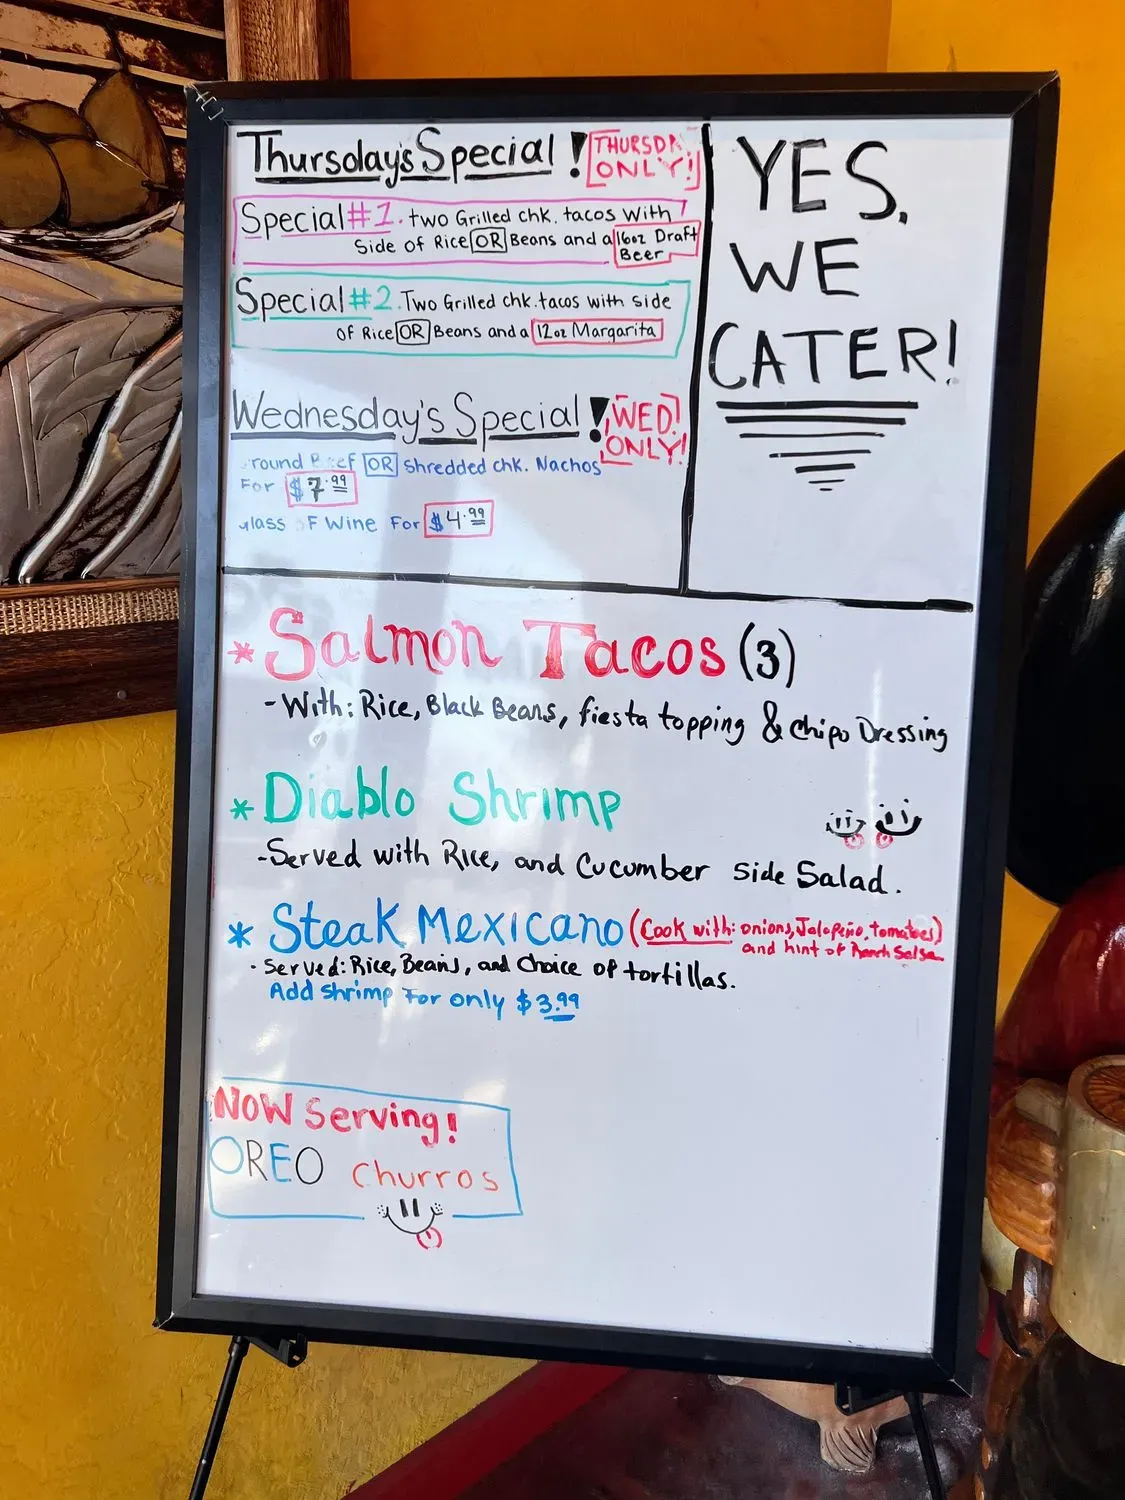 Thursday's Special!
THURSDA
ONLY!
Special #1. two Grilled chk. tacos with
Side of Rice OR Beans and a 16oz Draft
Beer
Special #2. Two Grilled chk. tacos with side
of Rice OR Beans and a 12oz Margarita
Wednesday's Special!
WED!
ONLY!
round Beef OR Shredded chk. Nachos
For $7.99
glass oF Wine For $4.99
YES,
WE
CATER!
*Salmon Tacos (3)
-With: Rice, Black Beans, fiesta topping & chipo Dressing
*Diablo Shrimp
-Served with Rice, and Cucumber side Salad.
*Steak Mexicano (Cook with: onions, Jalapeño, tomatoes)
and hint of Ranch Salsa
·Served: Rice, Beans, and Choice of tortillas.
Add shrimp For only $3.99
NOW Serving!
OREO Churros